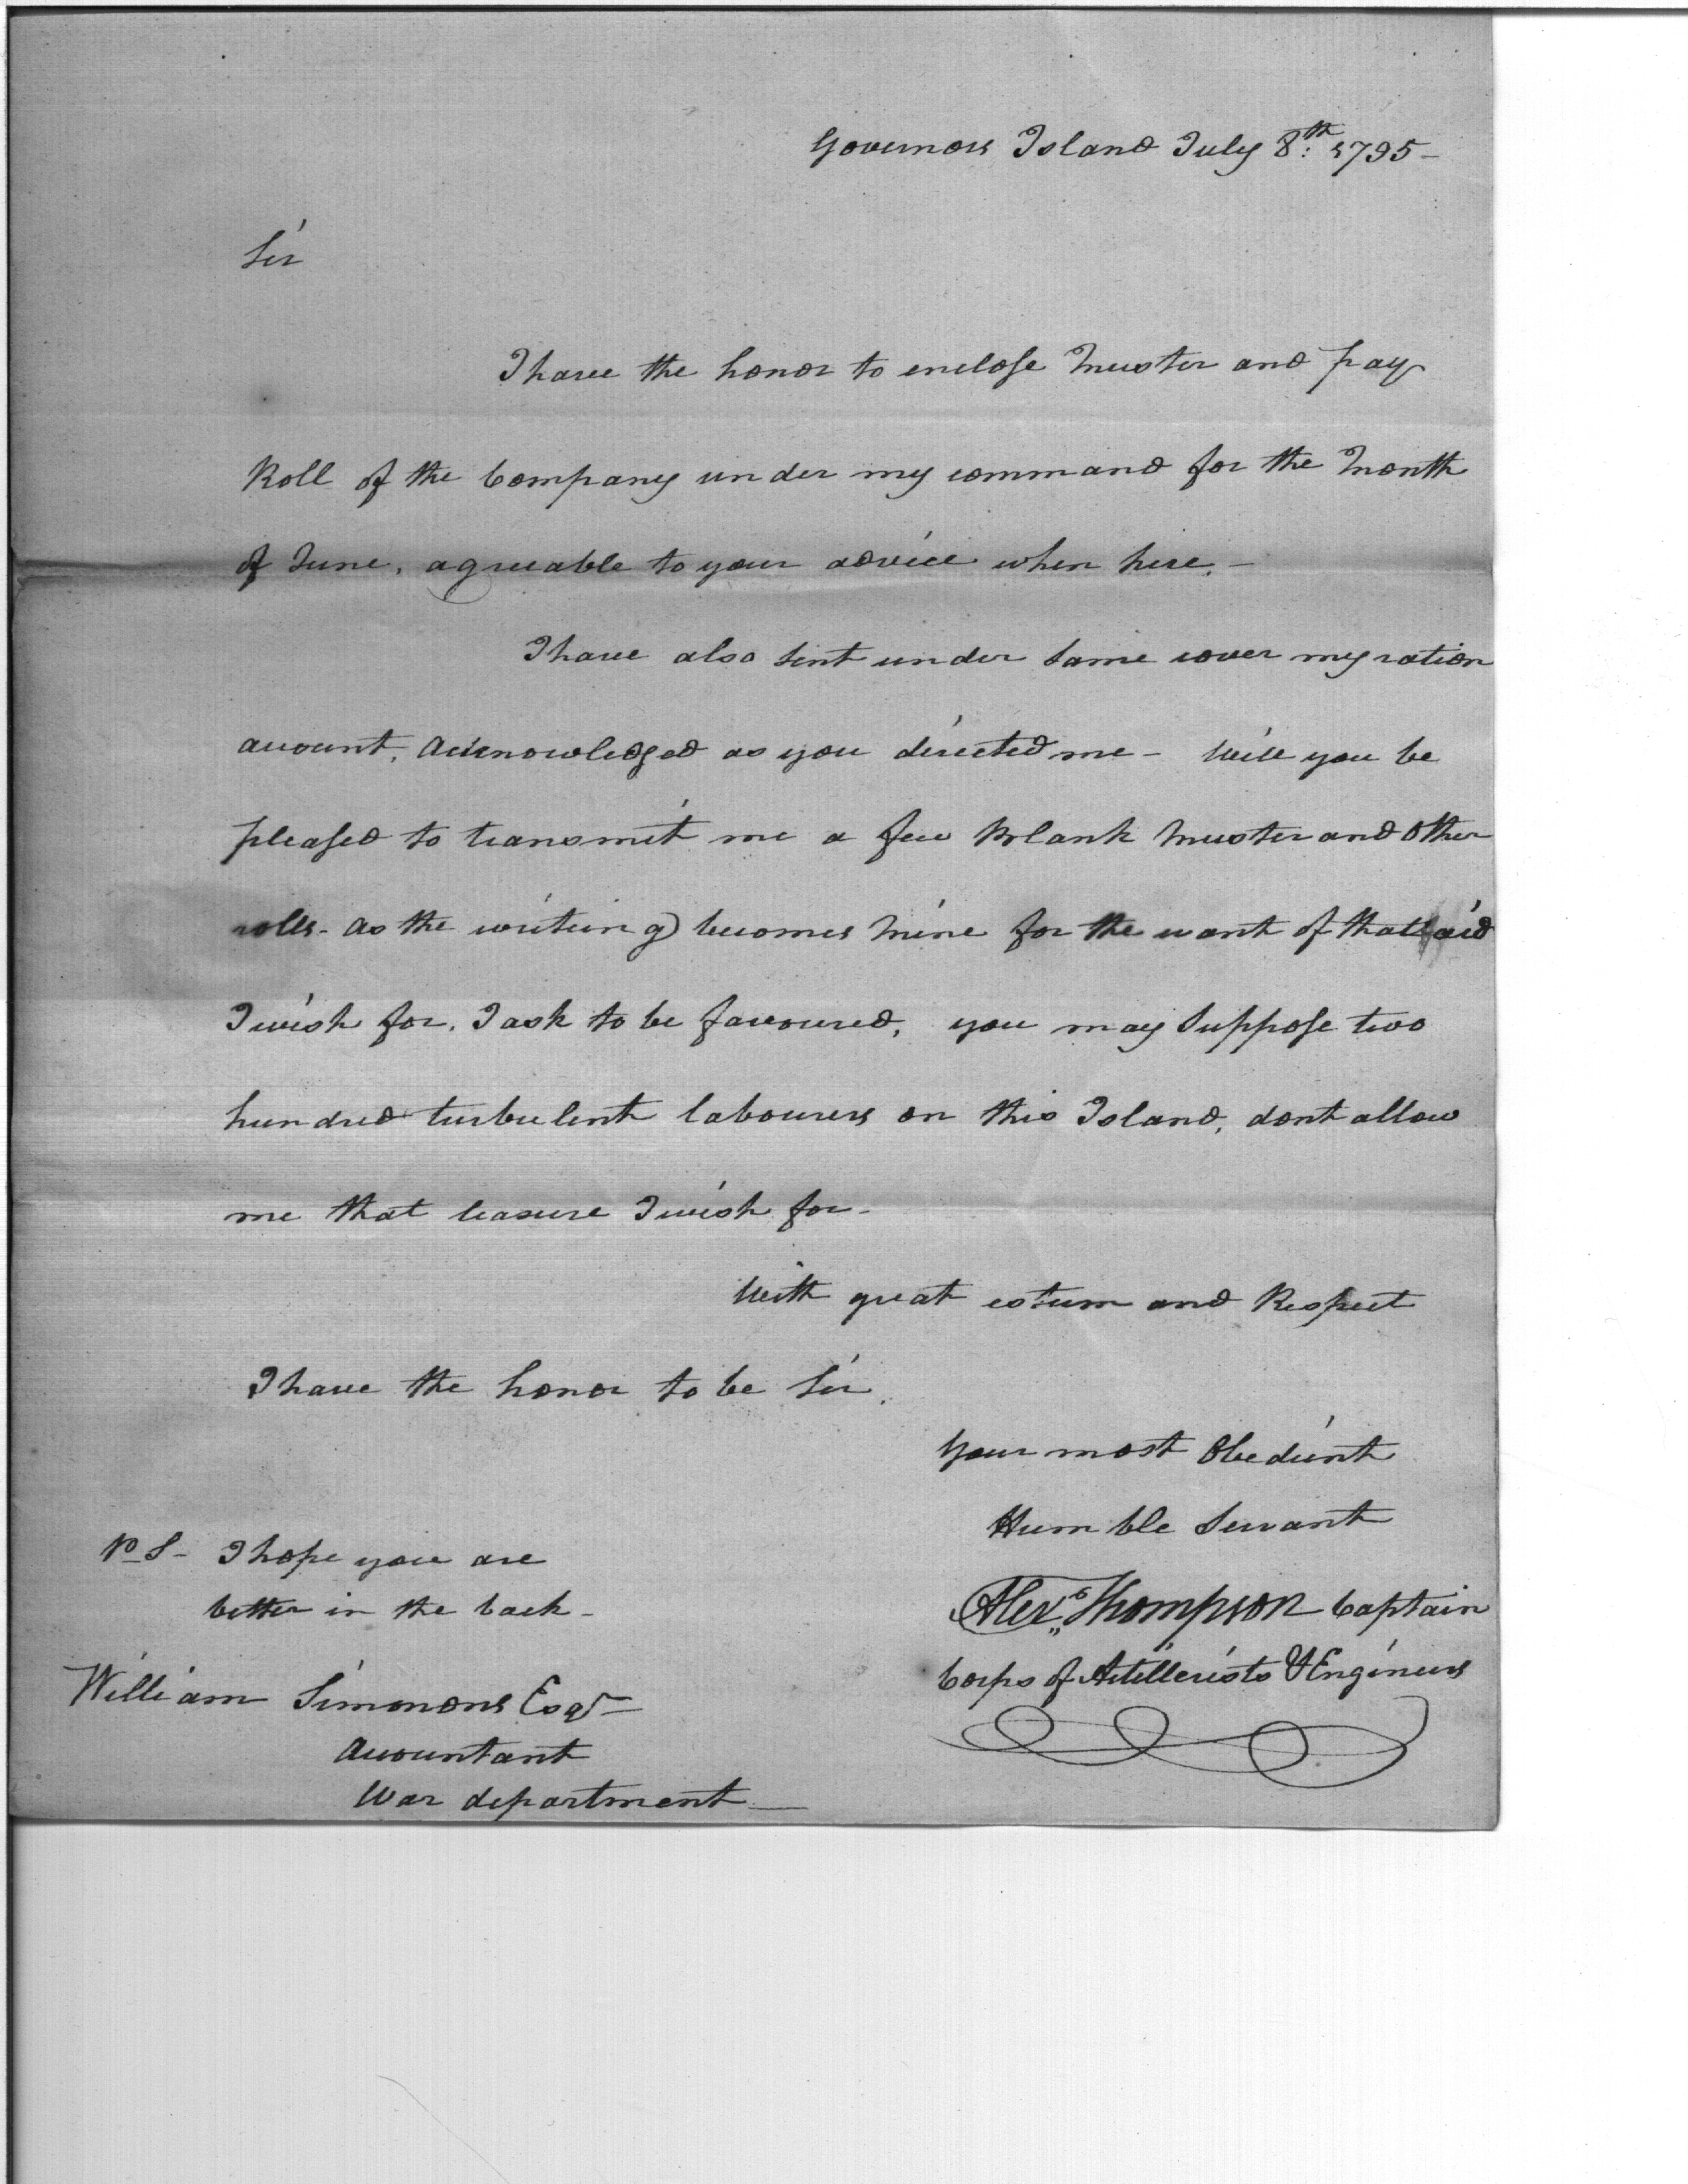 Governors Island July 8th: 1795-
Sir
I have the honor to enclose Muster and pay
Roll of the Company under my command for the Month
of June, agreeable to your advice when here.-
I have also sent under same cover my ration
account, Acknowledged as you directed me - Will you be
pleased to transmit me a few Blank Muster and Other
rolls - as the writeing becomes Mine for the want of that aid
I wish for, I ask to be favoured, you may Suppose two
hundred turbulent labourers on this Island, dont allow
me that leasure I wish for-
With great esteem and Respect
I have the honor to be Sir,
Your most Obedient
Humble Servant
Alexr Thompson Captain
Corps of Artillerists & Engineers
P.S- I hope you are
better in the back-
William Simmons Esqr
Accountant
War department